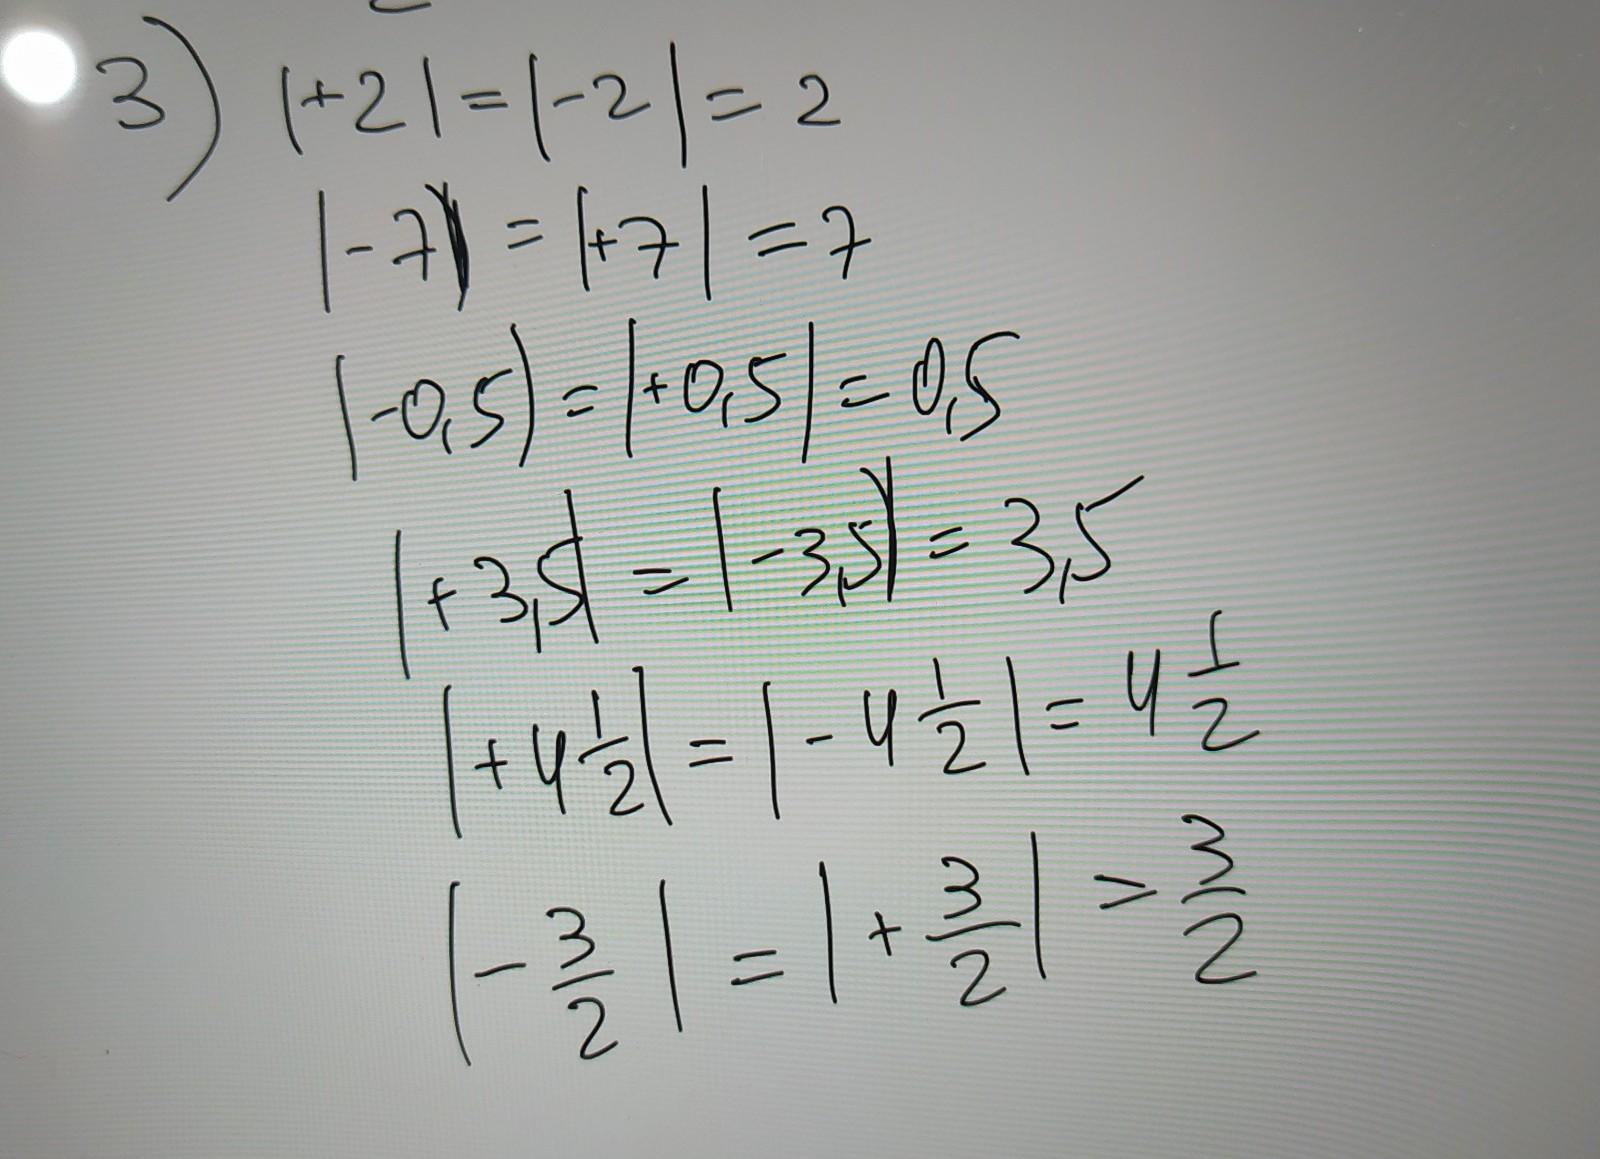 3) |+2| = |-2| = 2
|-7| = |+7| = 7
|-0,5| = |+0,5| = 0,5
|+3,5| = |-3,5| = 3,5
|+4 1/2| = |-4 1/2| = 4 1/2
|-3/2| = |+3/2| = 3/2